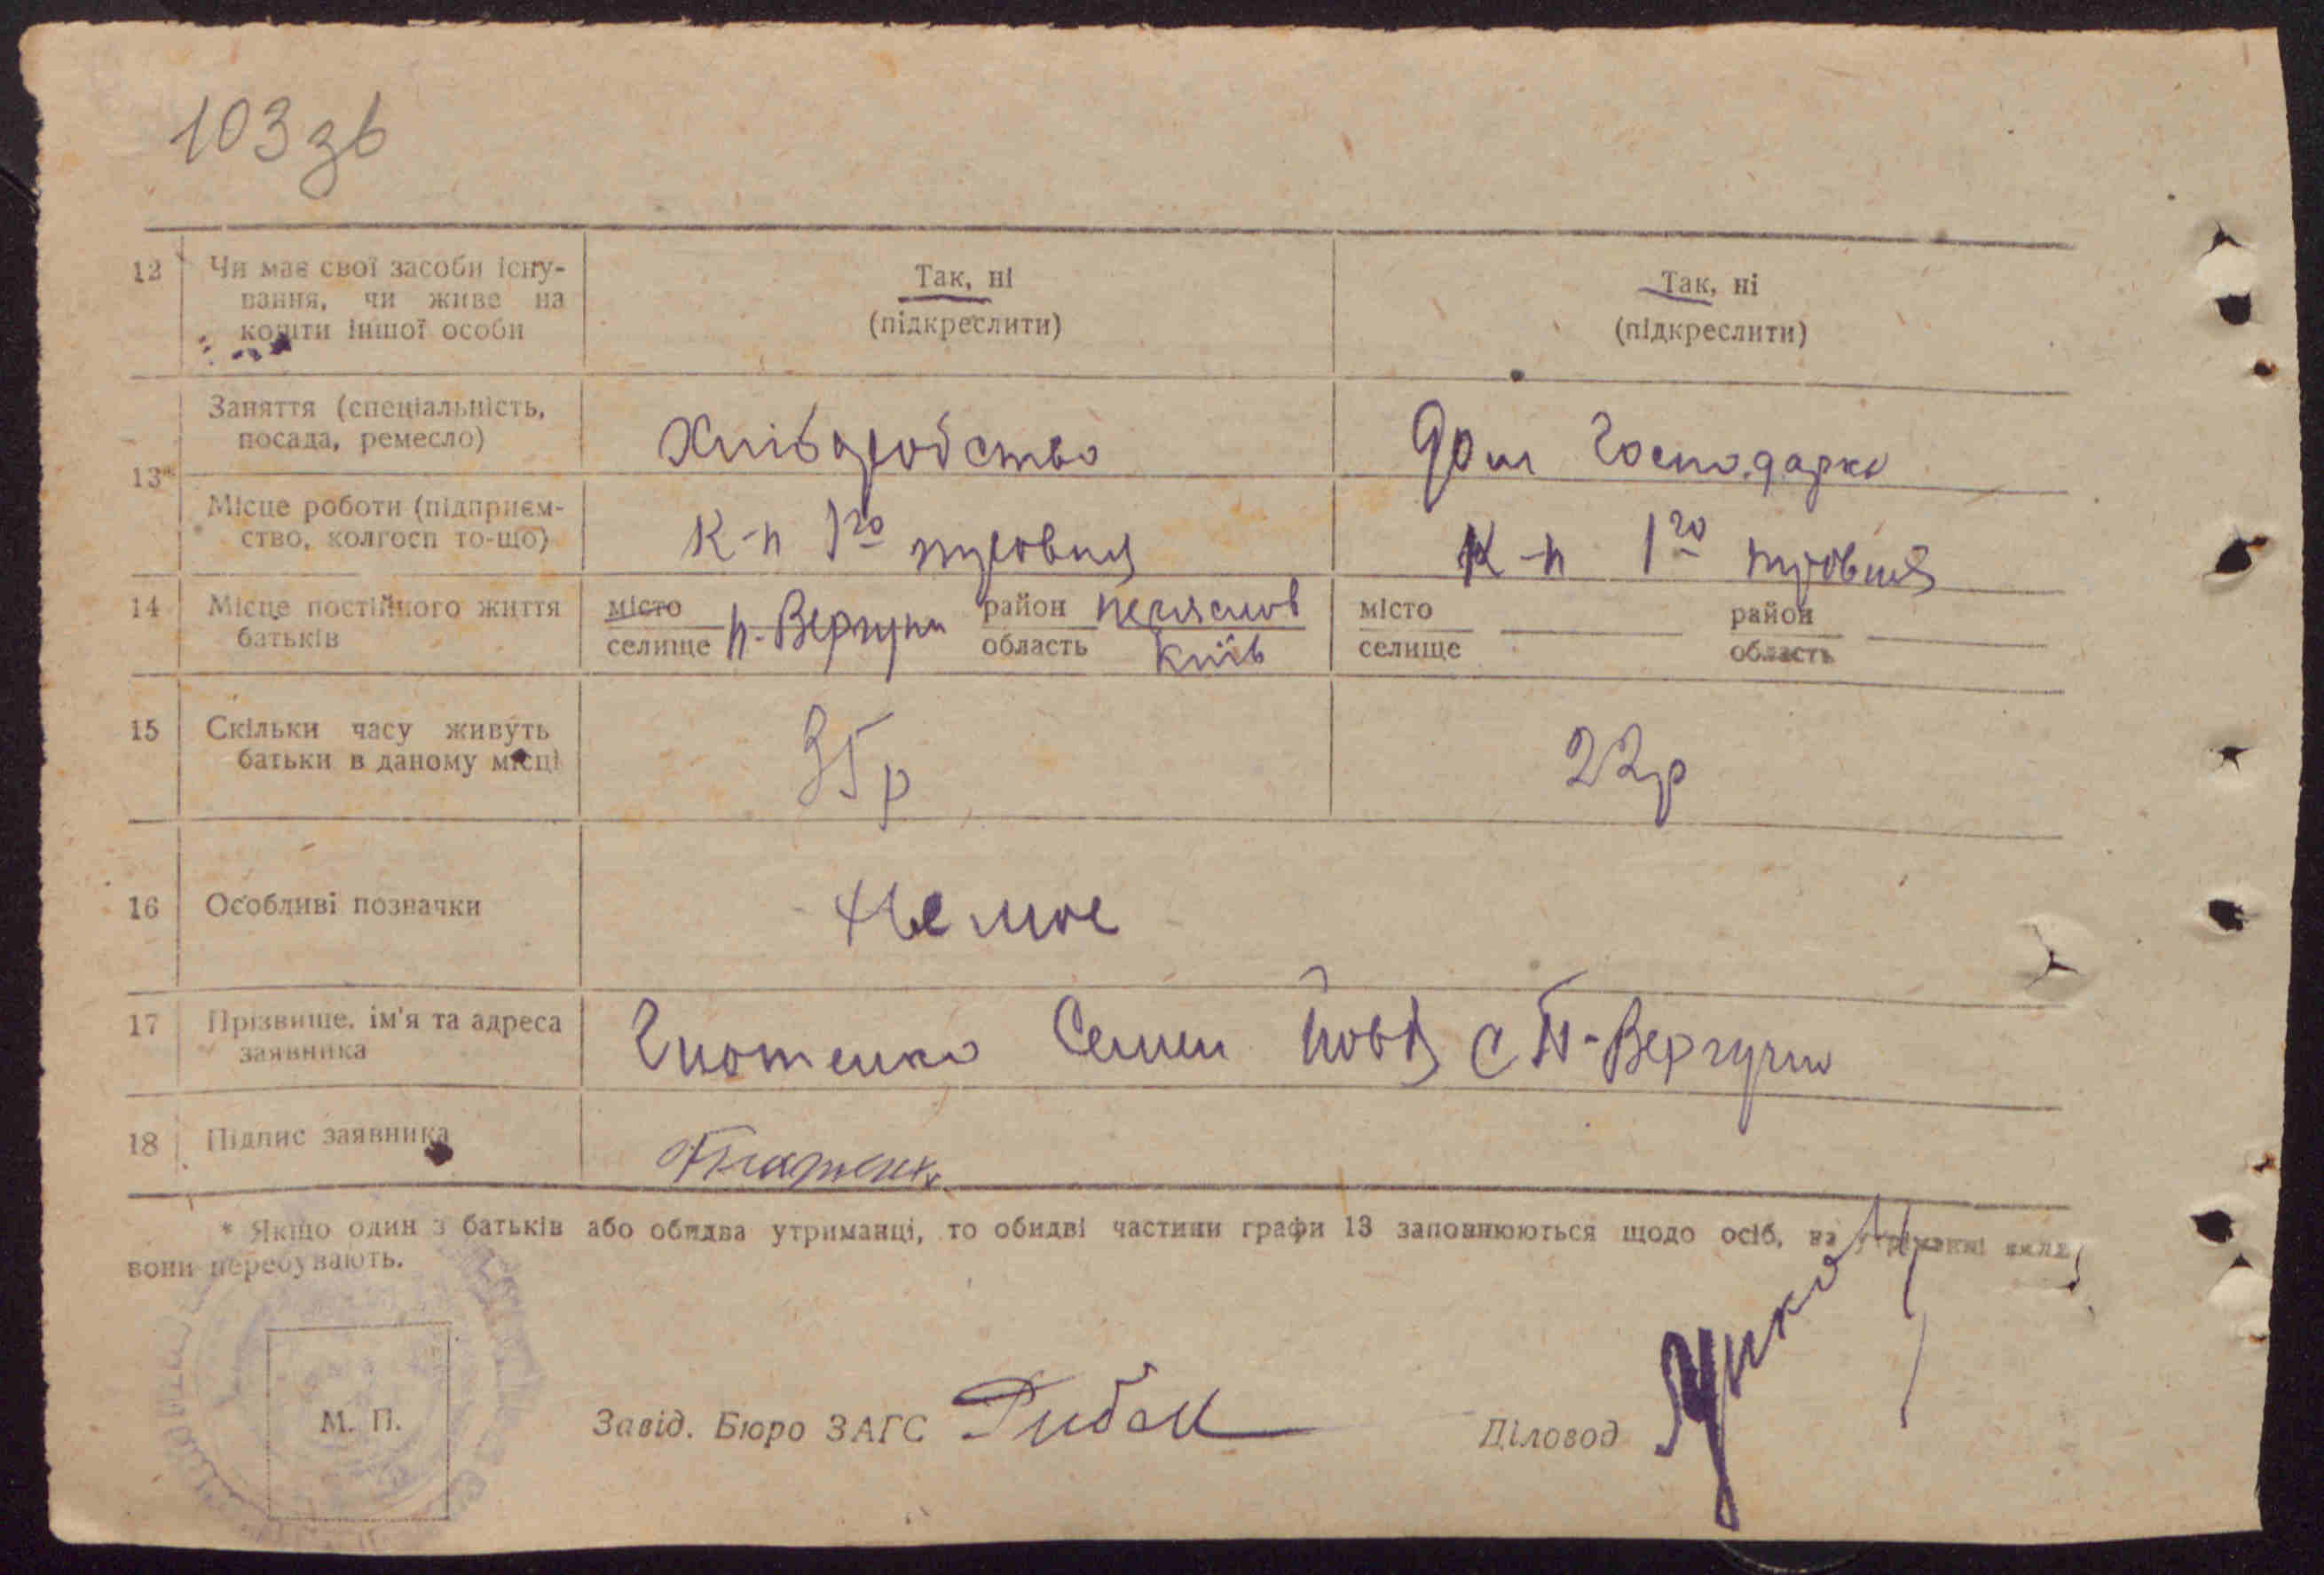 103 зв
12 Чи має свої засоби існу-
вання, чи живе на
кошти іншої особи
Так, ні
(підкреслити)
Так, ні
(підкреслити)
13*
Заняття (спеціальність,
посада, ремесло)
Хліборобство
Дом Господарка
Місце роботи (підприєм-
ство, колгосп то-що)
К-п 1го травня
К-п 1го травня
14 Місце постійного життя
батьків
місто
селище
П-Вергуни
район
область
Переяслов
Київ
місто
селище
район
область
15 Скільки часу живуть
батьки в даному місці
35р
22р
16 Особливі позначки
Немає
17 Прізвище, ім'я та адреса
заявника
Гнотенко Семен Йов с П-Вергуни
18 Підпис заявника
* Якщо один з батьків або обидва утриманці, то обидві частини графи 13 заповнюються щодо осіб, на утриманні яких
вони перебувають.
М. П.
Завід. Бюро ЗАГС Рибак
Діловод